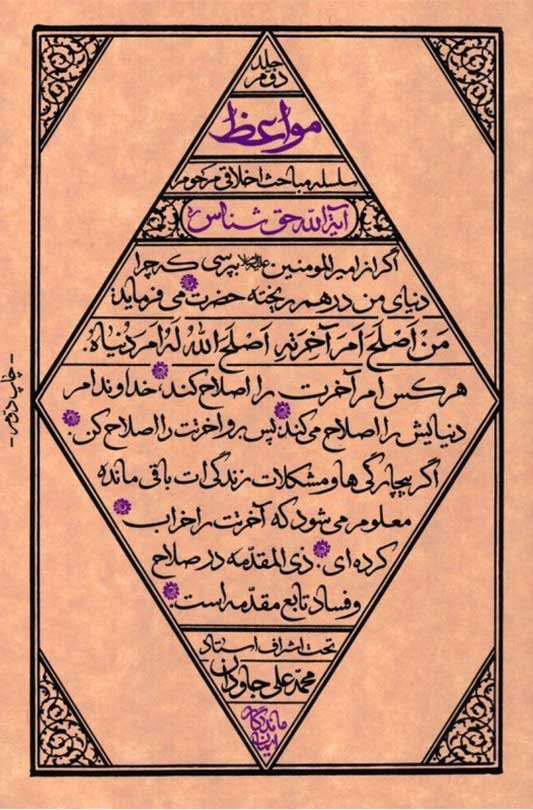 جلد
دوم
مواعظ
سلسله مباحث اخلاقی مرحوم
آیة الله حق شناس ره
اگر از امیرالمومنین علیه‌السلام بپرسی که چرا
دنیای من درهم ریخته حضرت می فرماید:
مَنْ اَصْلَحَ اَمرَ آخِرَتِهِ اَصْلَحَ اللهُ لَهُ اَمرَ دُنیاهُ.
هر کس امر آخرت را اصلاح کند، خداوند امر
دنیایش را اصلاح می کند؛ پس برو آخرتت را اصلاح کن.
اگر بیچارگی ها و مشکلات زندگی ات باقی مانده
معلوم می شود که آخرتت را خراب
کرده ای. ذی المقدّمه در صلاح
و فساد تابع مقدّمه است.
تحت اشراف استاد
محمد علی جاودان
ماندگار
- چاپ دوم -